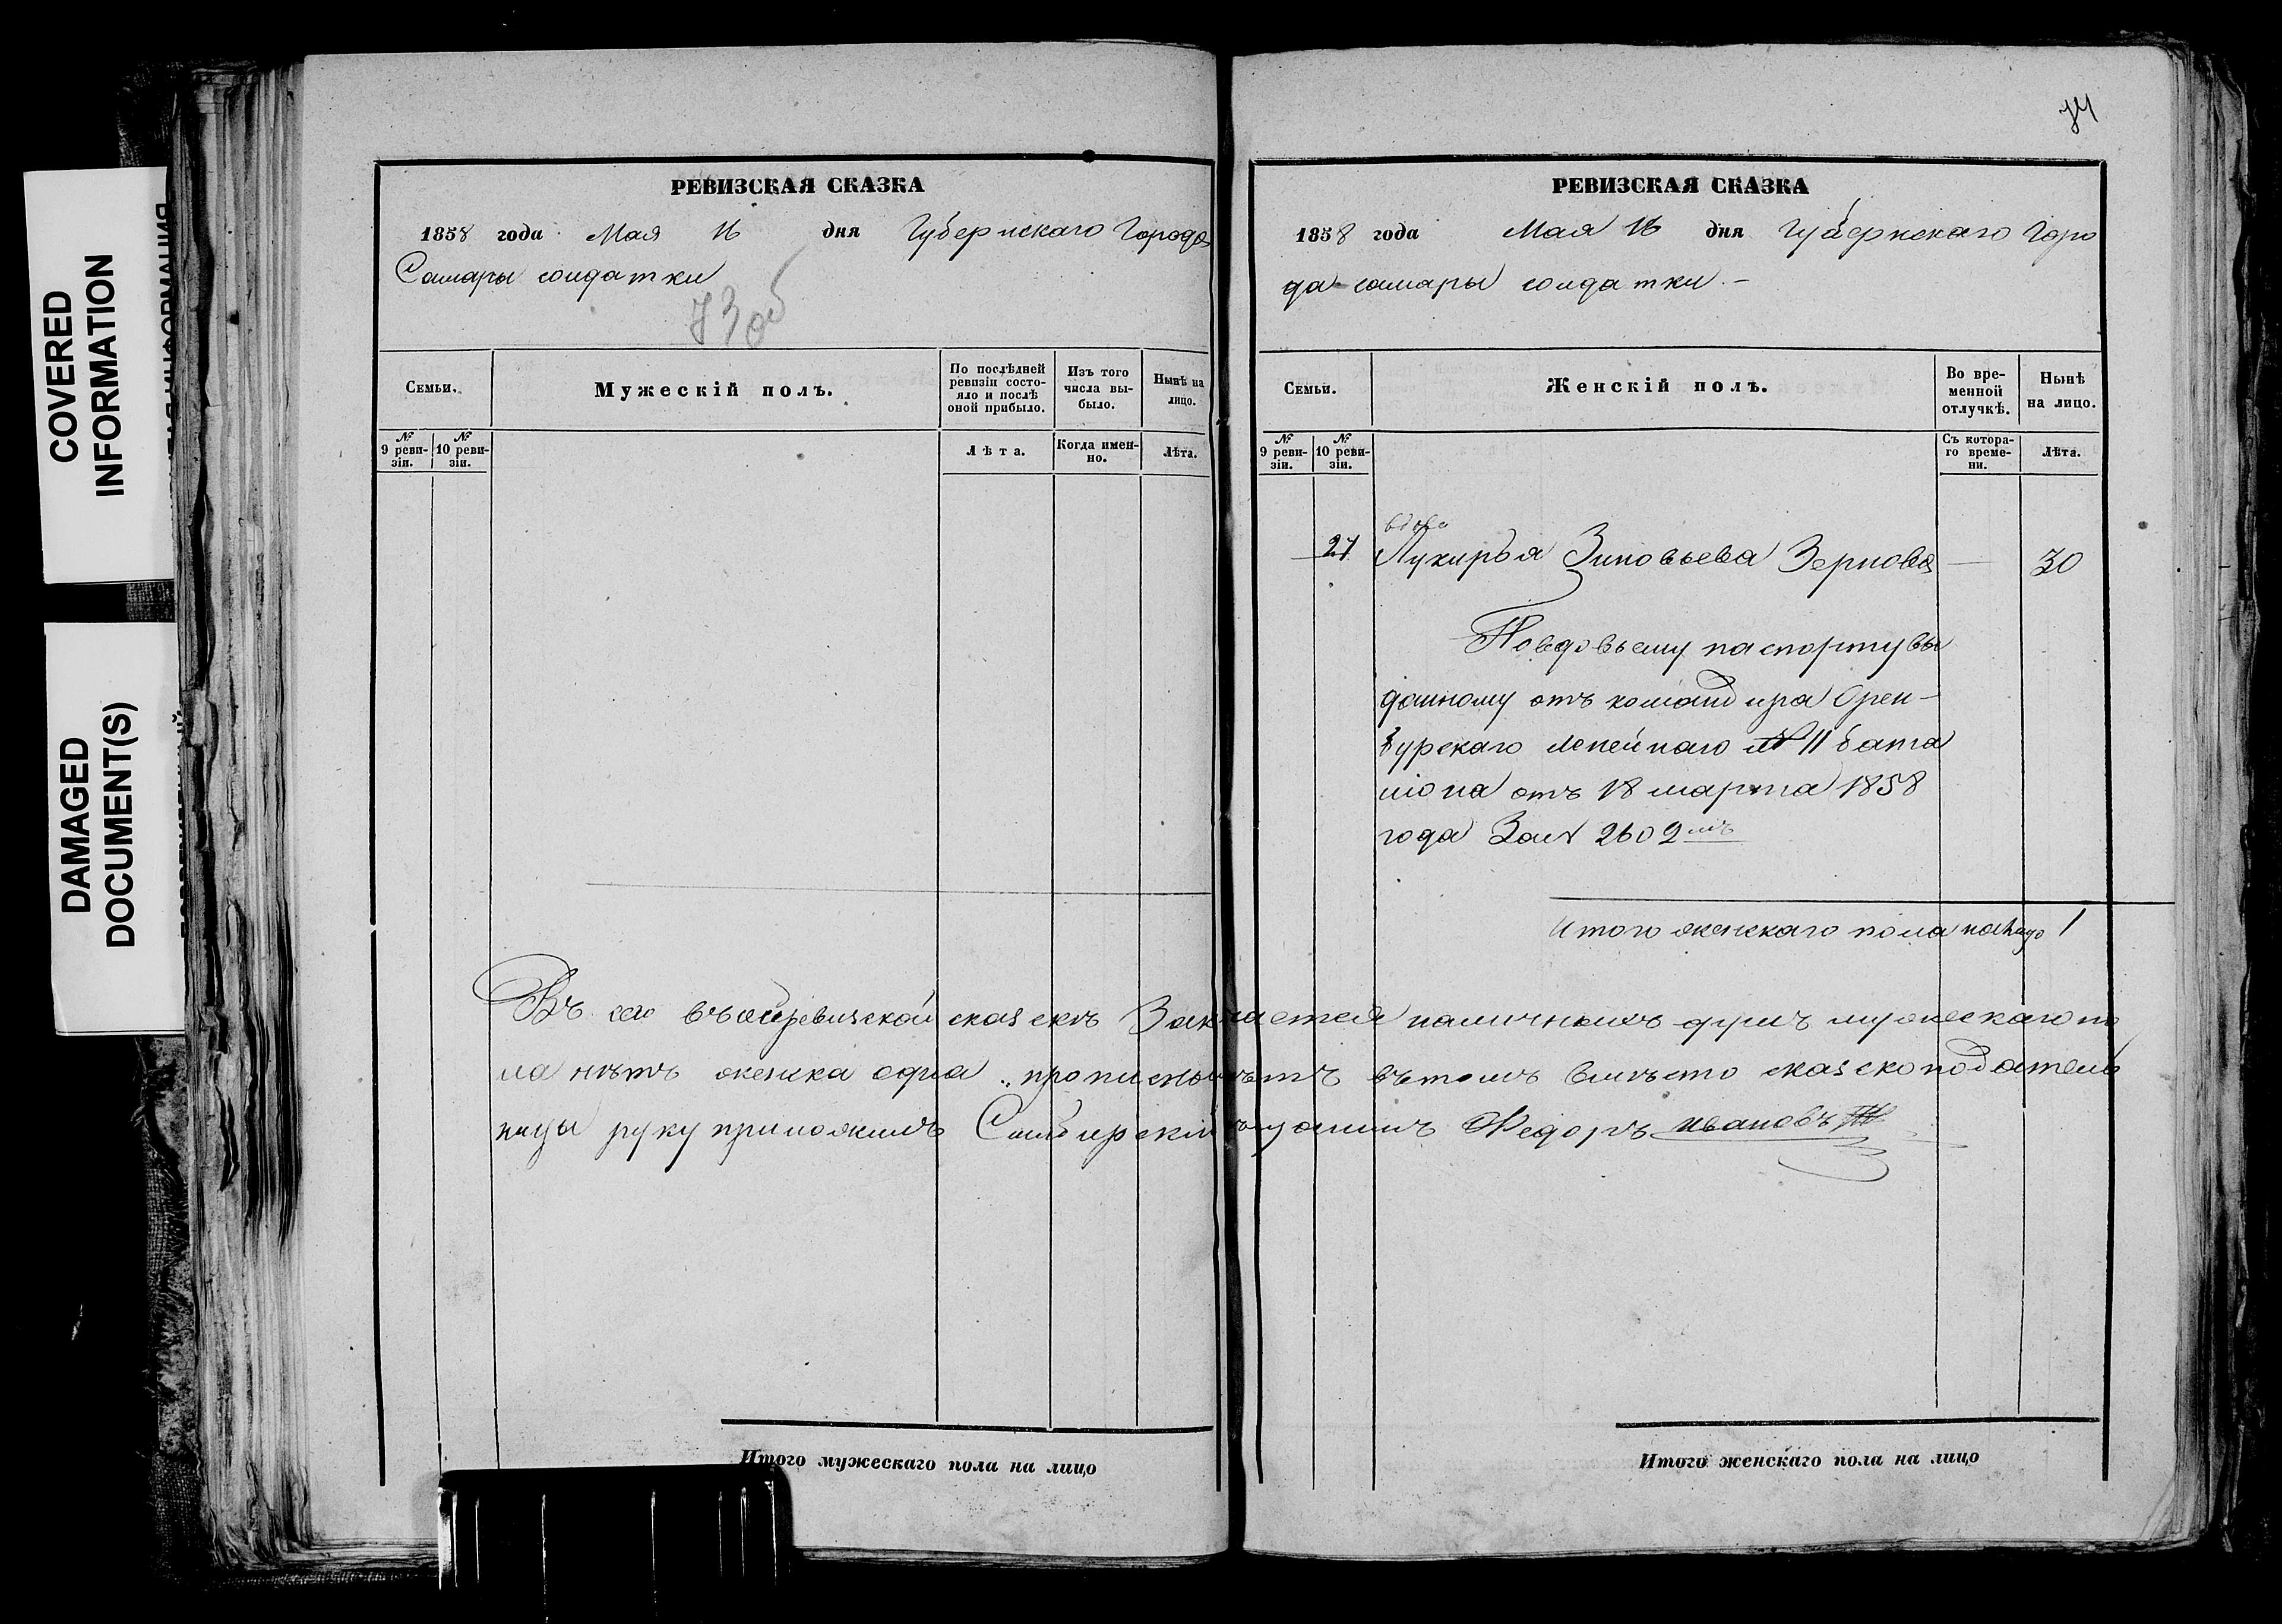 COVERED
INFORMATION
DAMAGED
DOCUMENT(S)
РЕВИЗСКАЯ СКАЗКА
1858 года Мая 16 дня Губернскаго Города
Самары солдатки
73об
Семьи.
Мужескій полъ.
По послѣдней ревизіи состо-
яло и послѣ оной прибыло.
Изъ того числа вы-
было.
Нынѣ на лицо.
№ 9 реви-
зіи.
№ 10 реви-
зіи.
Лѣта.
Когда имен-
но.
Лѣта.
74
РЕВИЗСКАЯ СКАЗКА
1858 года Мая 16 дня Губернскаго Горо
да самары солдатки.-
Семьи.
Женскій полъ.
Во вре-
менной отлучкѣ.
Нынѣ на лицо.
№ 9 реви-
зіи.
№ 10 реви-
зіи.
Съ котора-
го време-
ни.
Лѣта.
вдова
27 Лукирья Зиновьева Зернова — 30
Повдовьему паспорту вы
данному отъ командира Орен-
бурскаго Линейнаго № 11 бата
лiона отъ 18 марта 1858
года За№ 2602мъ
Итого женскаго пола налицо 1
Въ сей ревизской сказскѣ наличныхъ душъ мужескаго по
ла нѣтъ женска одна въ томъ вмѣсто сказскоподатель
ницы руку приложилъ Симбирскій Федоръ Ивановъ
Итого мужескаго пола на лицо
Итого женскаго пола на лицо